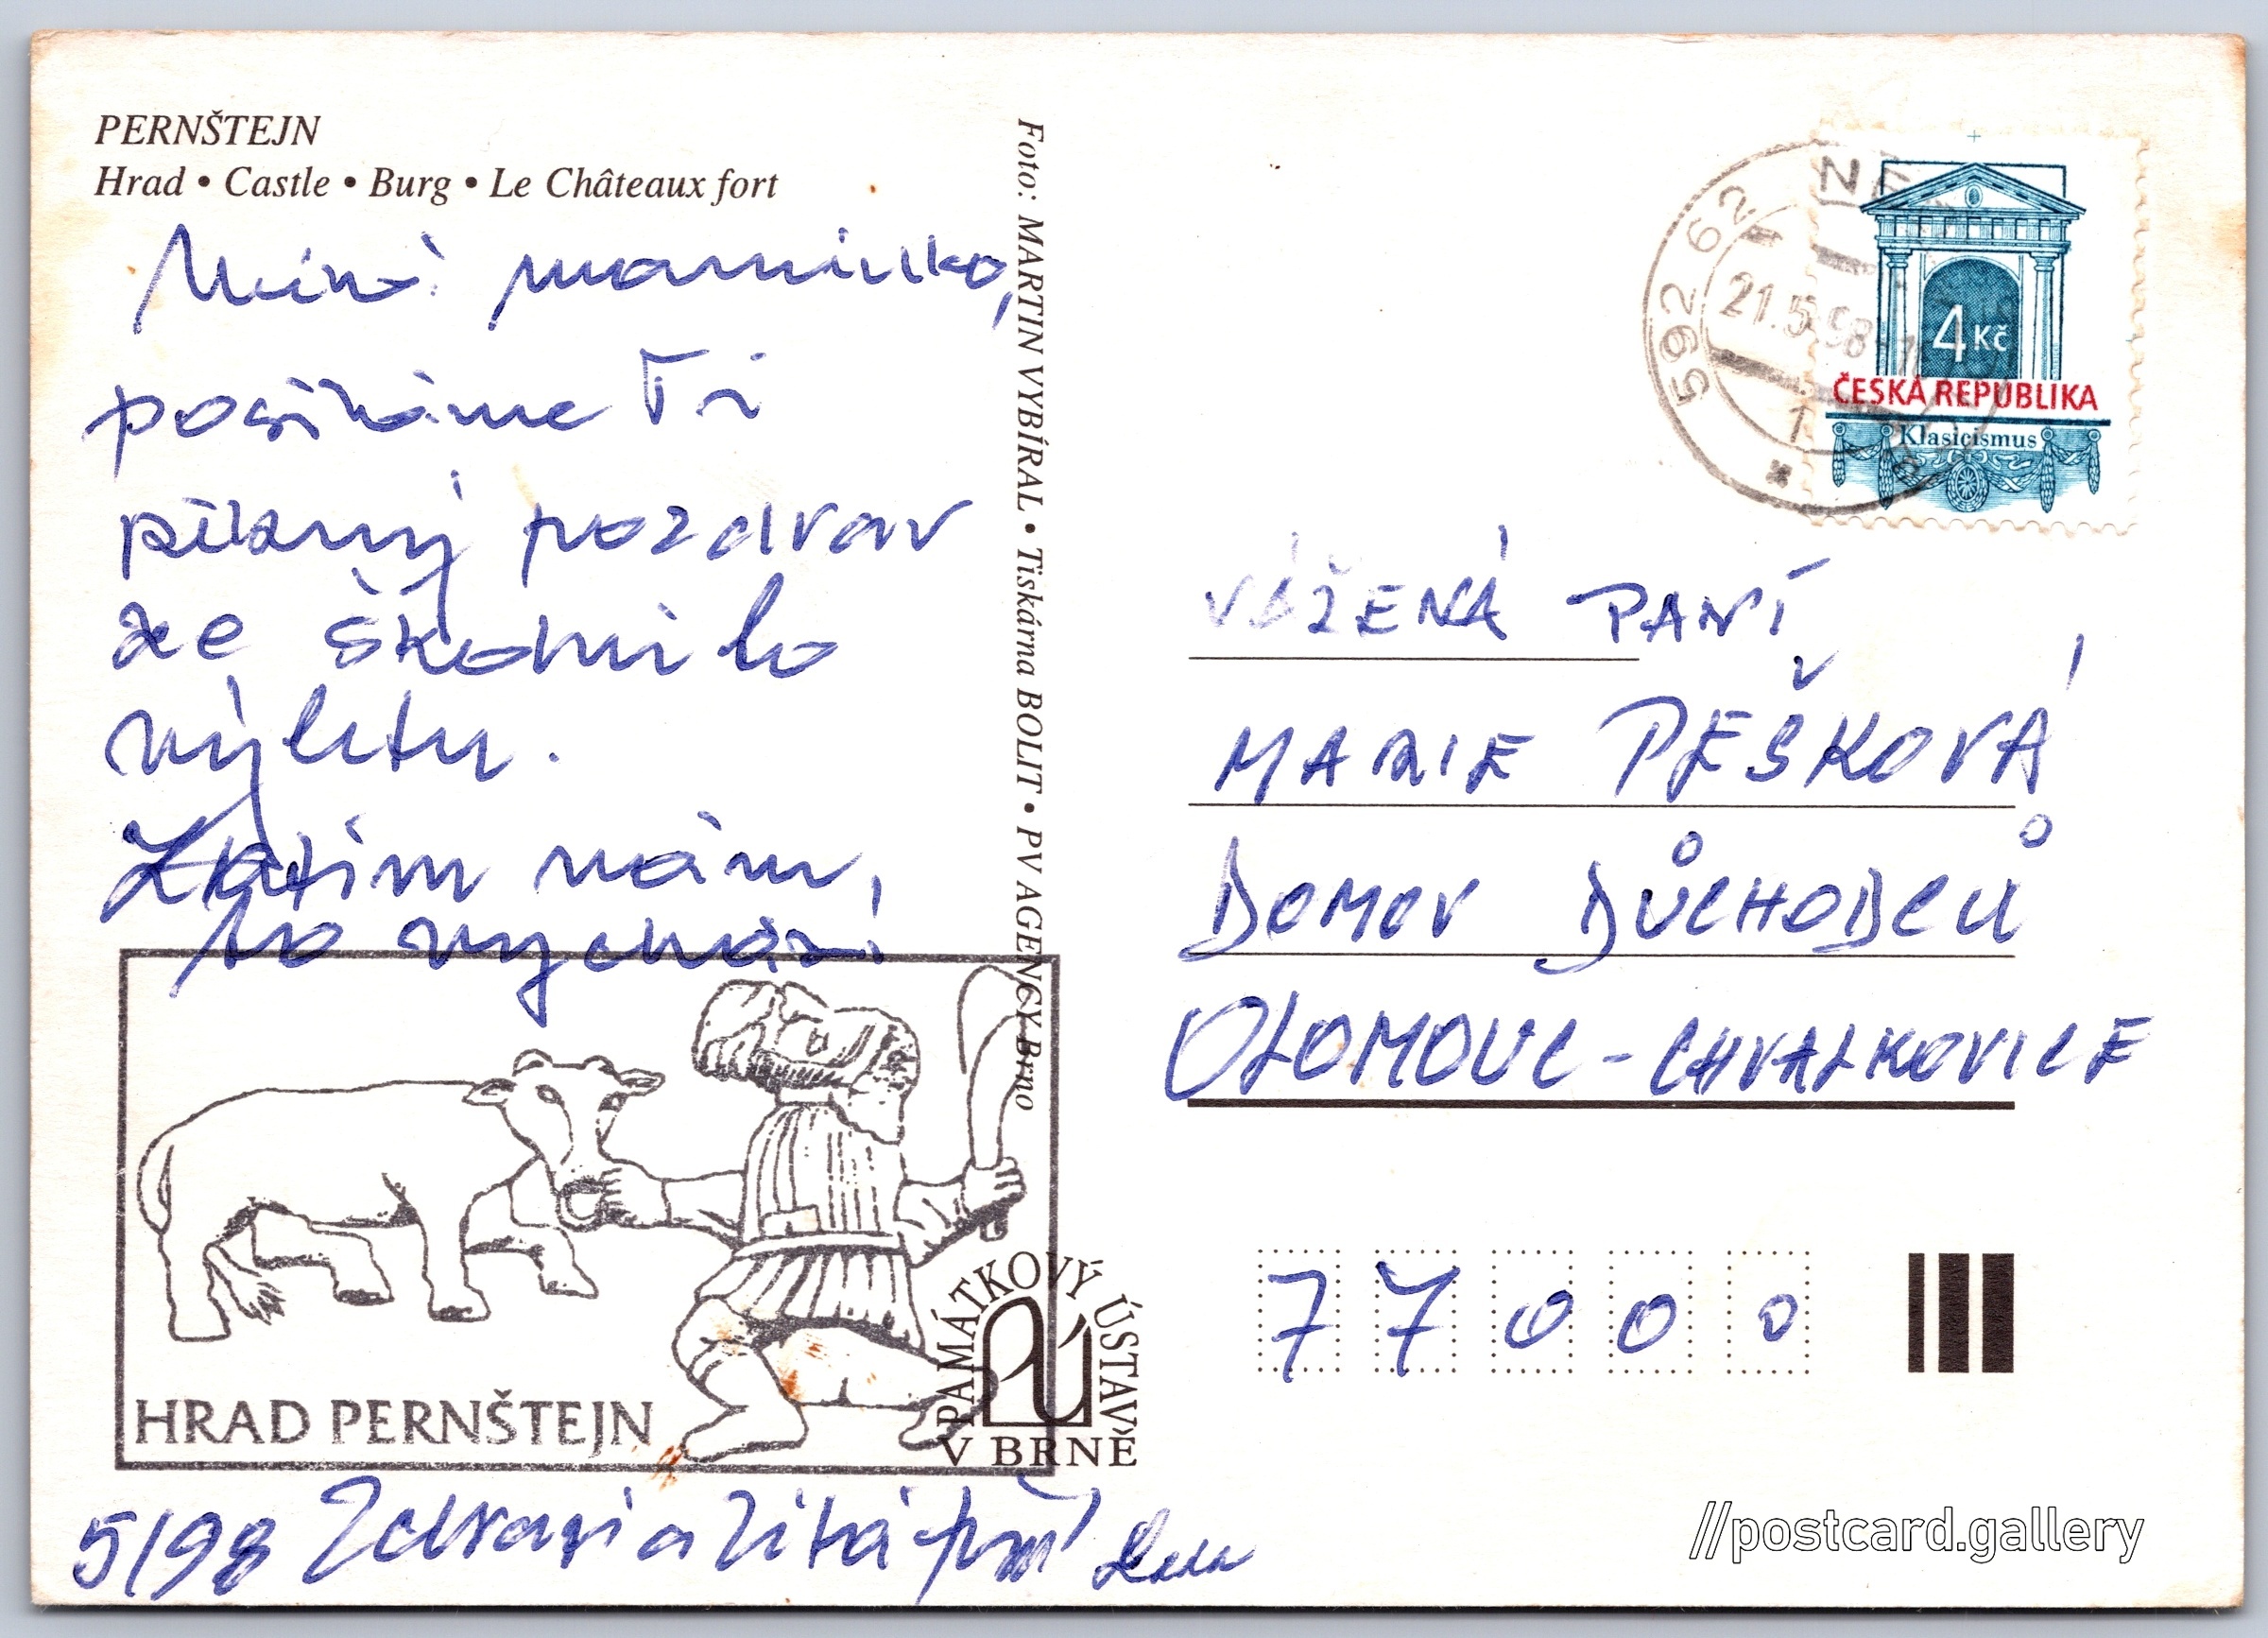 PERNŠTEJN
Hrad • Castle • Burg • Le Châteaux fort
Milá maminko,
posíláme Ti
pěkný pozdrav
ze školního
výletu.
Zatím nám
to vychází
HRAD PERNŠTEJN
5/98 Zdraví a
Foto: MARTIN VYBÍRAL • Tiskárna BOLIT • PV AGENCY Brno
PAMÁTKOVÝ ÚSTAV
V BRNĚ
592 62
21.5.98
1
4 Kč
ČESKÁ REPUBLIKA
Klasicismus
VÁŽENÁ PANÍ
MARIE PEŠKOVÁ
DOMOV DŮCHODCŮ
OLOMOUC - CHVALKOVICE
77000
//postcard.gallery